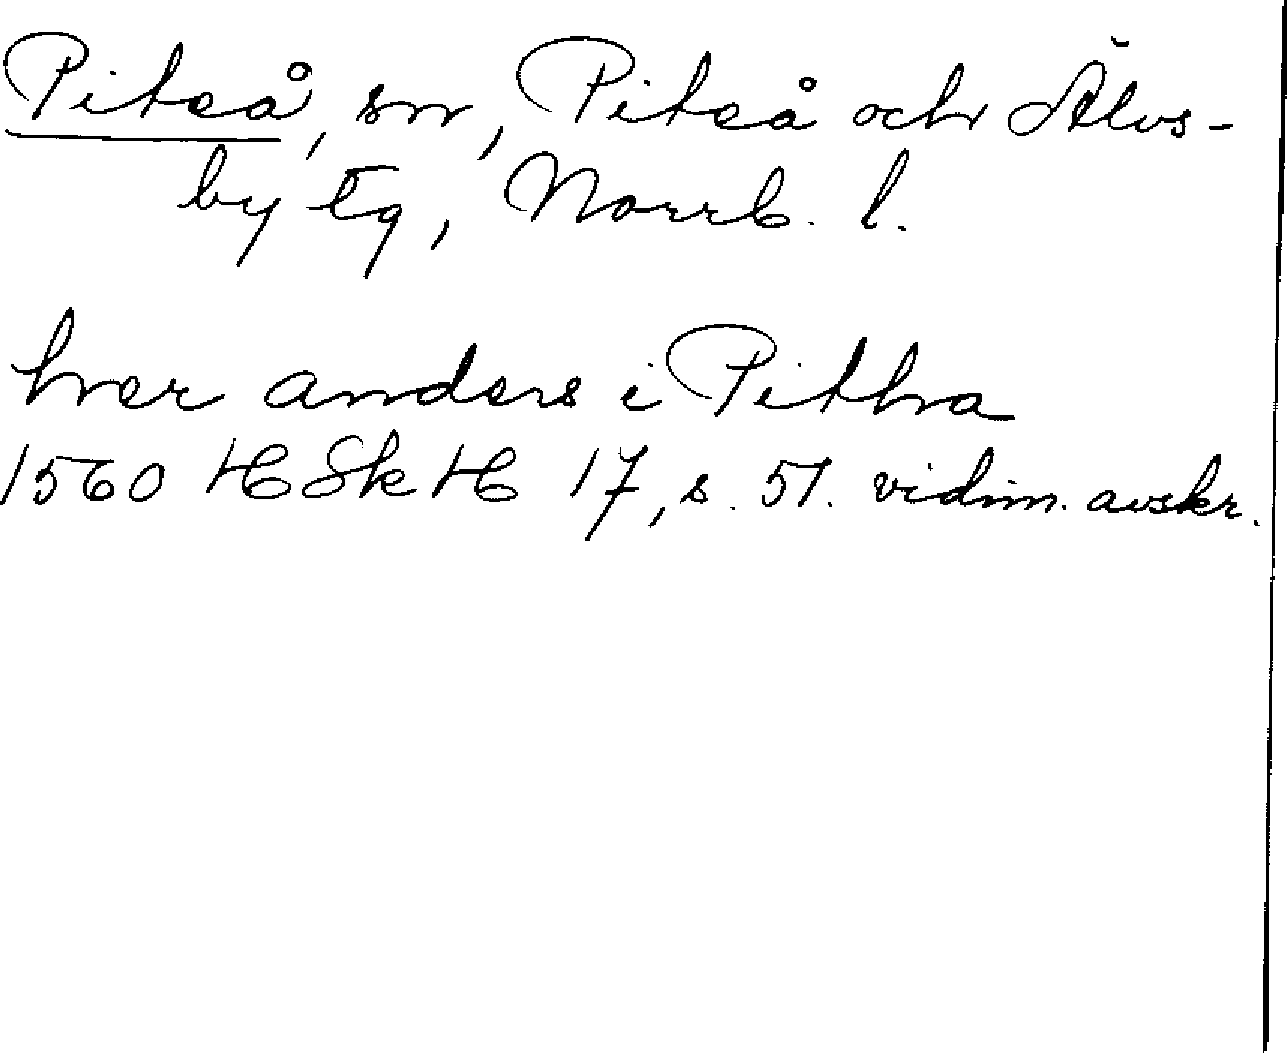 Piteå, sn, Piteå och Älvs-
by tg, Norrb. l.
her anders i Pitha
1560 HSkH 17, s. 51. vidim. avskr.